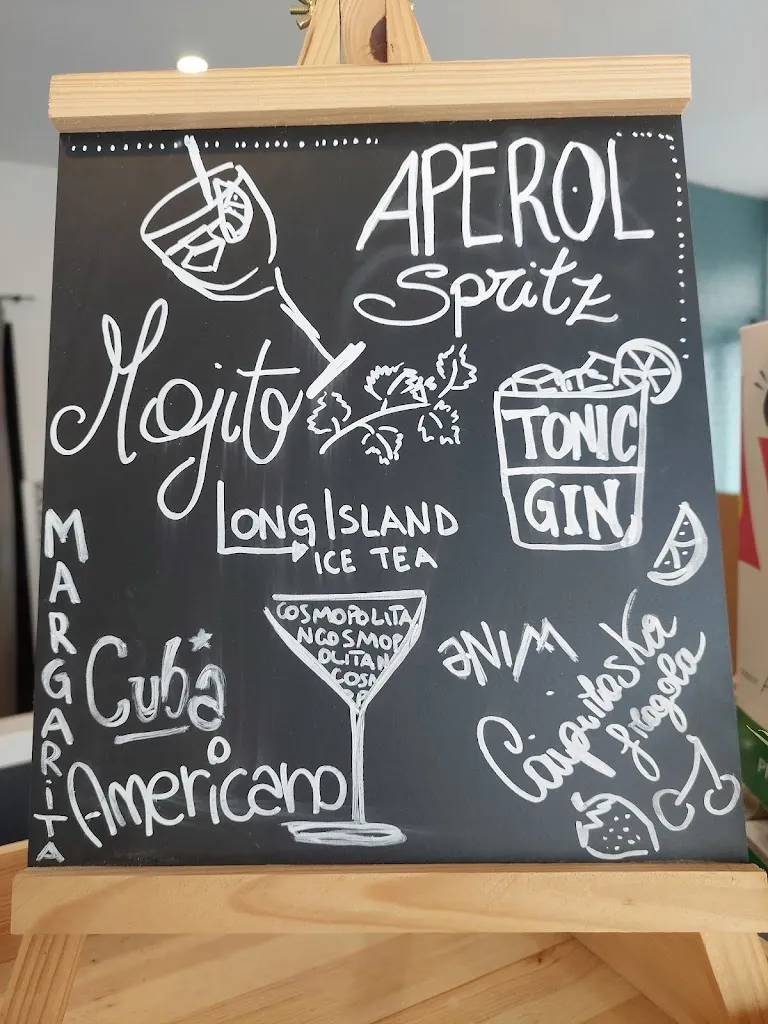 APEROL
Spritz
Mojito
TONIC
GIN
LONG ISLAND
ICE TEA
MARGARiTA
COSMOPOLITA
NCOSMOP
OLITAN
COSM
Cuba
WINE
Caipiroska
fragola
Americano